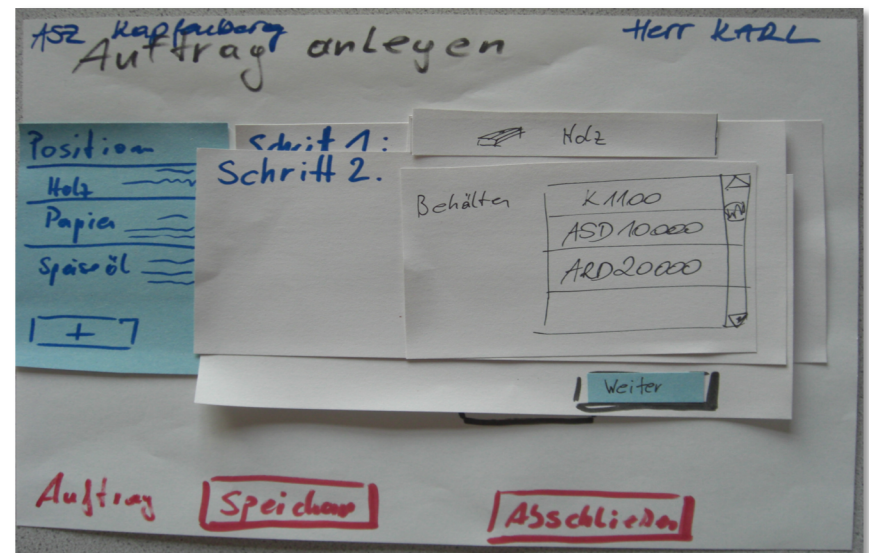 ASZ Kapfenberg
Herr KARL
Auftrag anlegen
Position
Holz
Papier
Speiseöl
+
Schritt 1:
Schritt 2.
Holz
Behälter
K1100
ASD 10.000
ARD20000
Weiter
Auftrag
Speichern
Abschließen